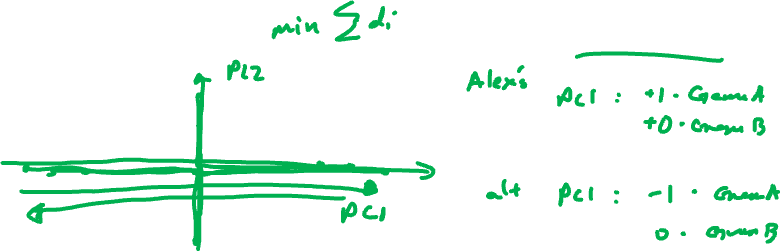 min ∑ di
PC2
PC1
Alex's PC1 : +1 · Gene A
+0 · Gene B
alt PC1 : -1 · Gene A
0 · Gene B